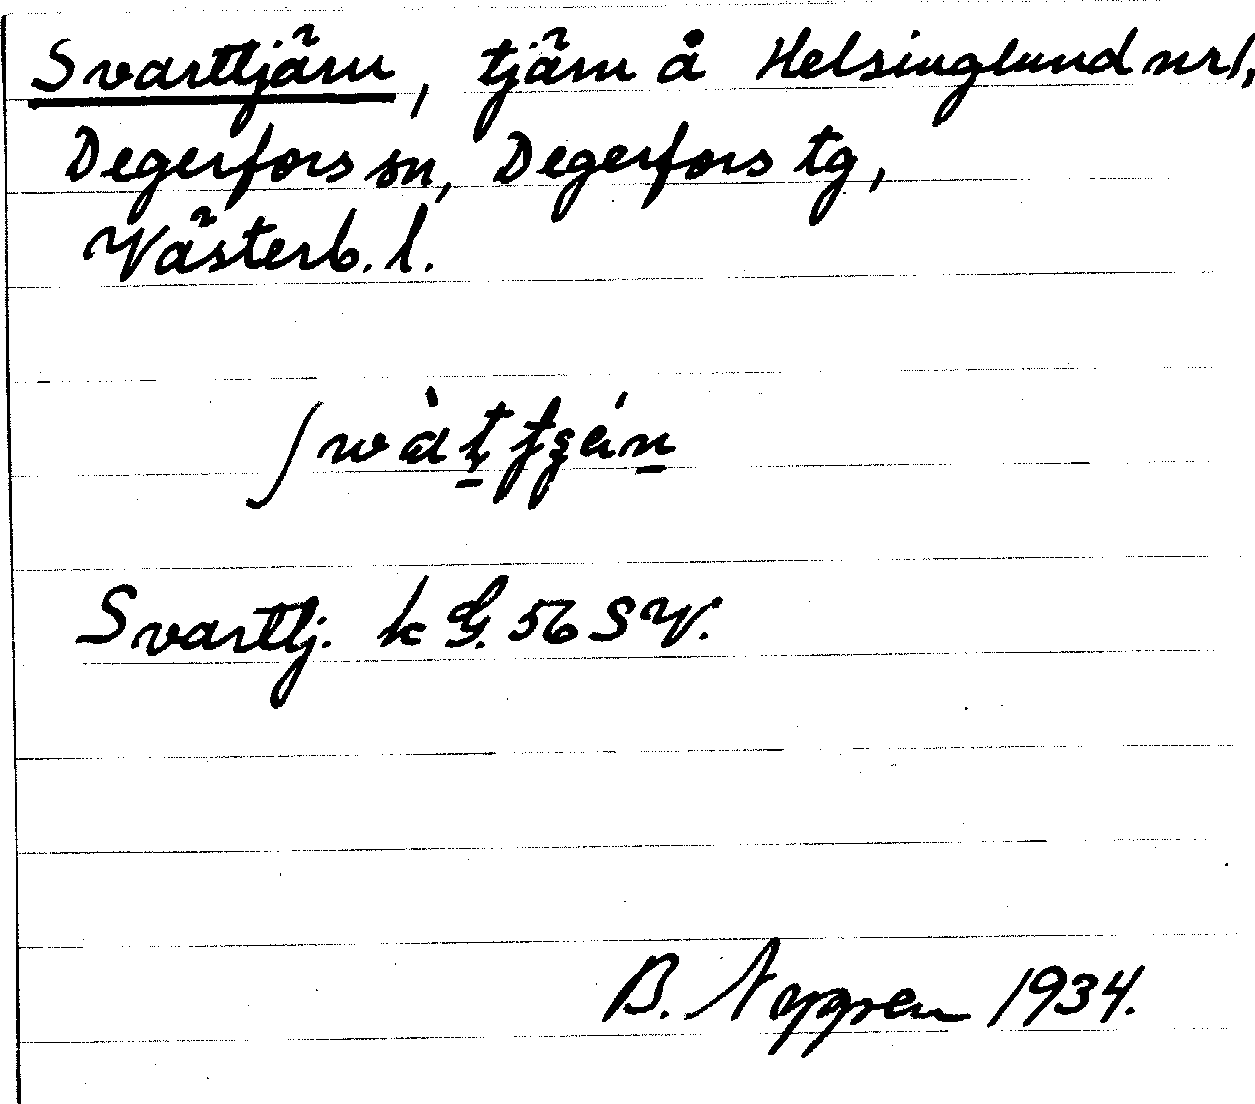 Svarttjärn, tjärn å Helsinglund nr 1,
Degerfors sn, Degerfors tg,
Västerb. l.
Svarttj. k G. 56 SV.
B. Nygren 1934.